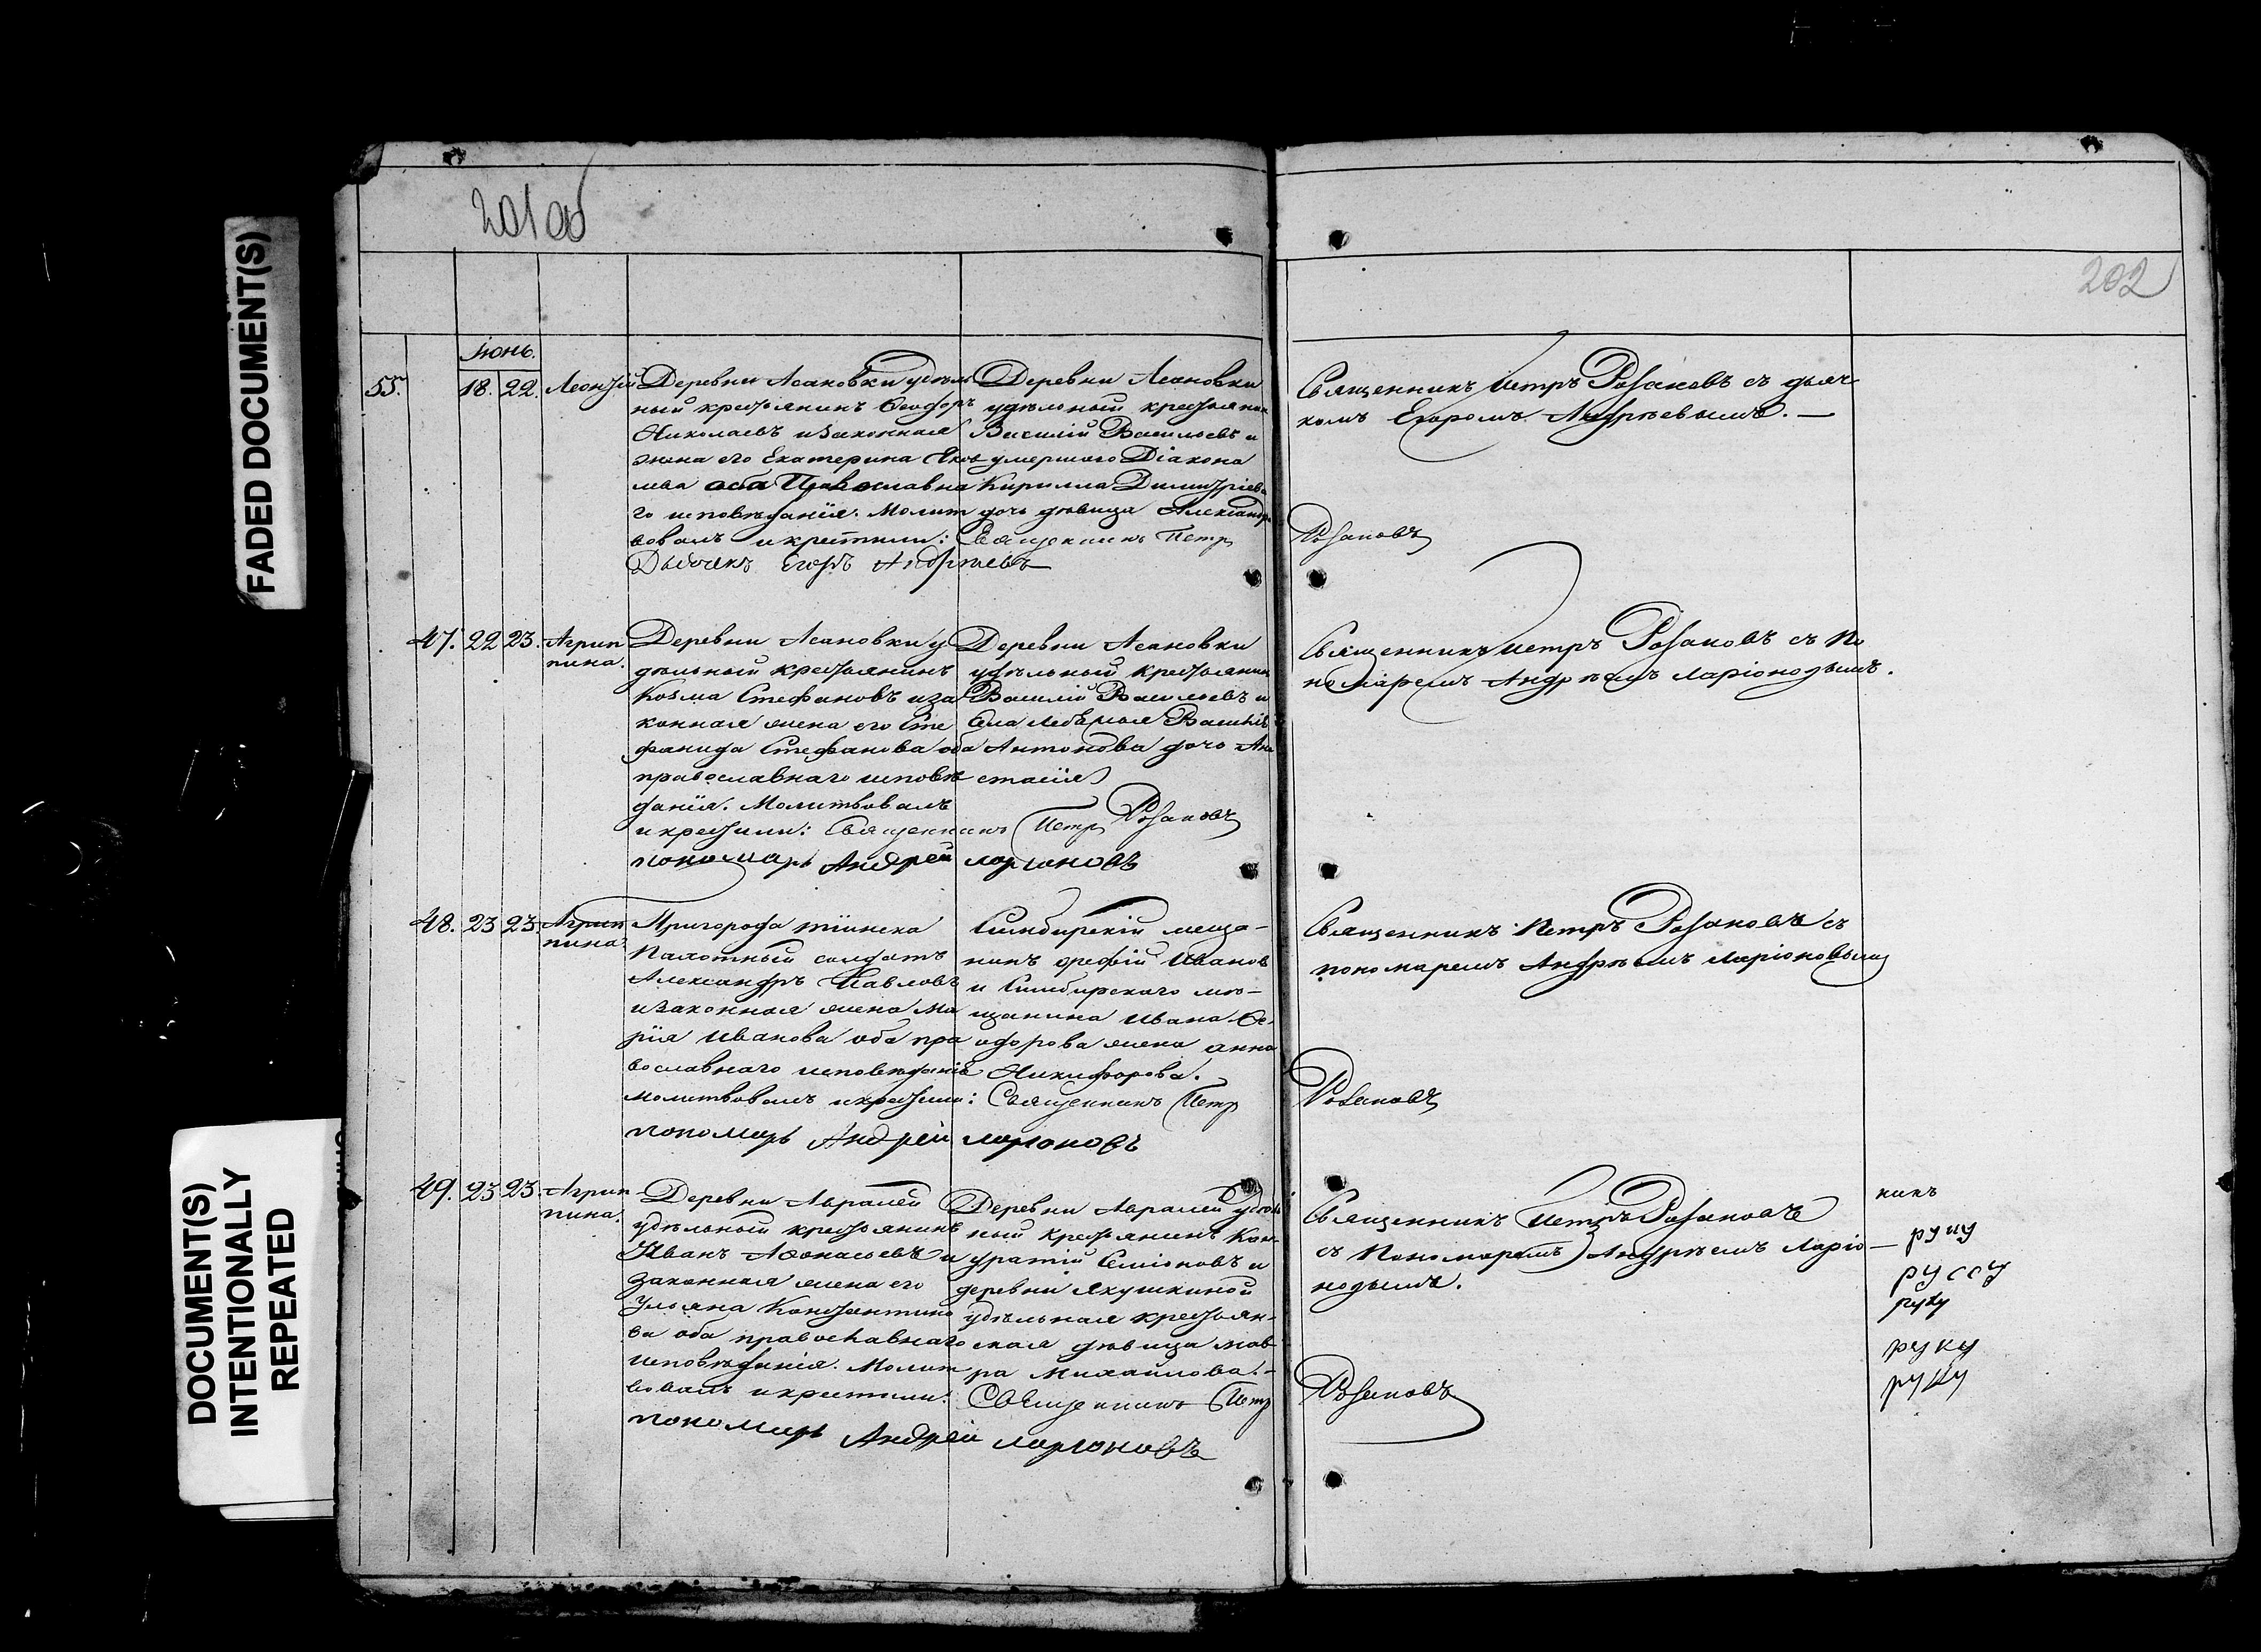 FADED DOCUMENT(S)
DOCUMENT(S)
INTENTIONALLY
REPEATED
201 об
202
Іюнь.
55. 18. 22. Леонтій
Деревни Асановки удѣль
ный крестьянинъ Ѳеодоръ
Николаевъ и законная
жена его Екатерина Яков
лева оба Православна
го исповѣданія. Молит
вовалъ и крестили: Священникъ Петр
Дьячекъ Егоръ Андреевъ
Деревни Асановки
удѣльный крестьянин
Василій Васильевъ и
умершаго Діакона
Кирилла Димитріева
дочь дѣвица Александра
Священникъ Петръ Розановъ съ дьяч
комъ Егоромъ Андрѣевымъ. —
Розановъ
47. 22 23. Агрип
пина.
Деревни Асановки у
дѣльный крестьянинъ
Козма Стефановъ и за
конная жена его Сте
фанида Стефанова оба
православнаго исповѣ
данія. Молитвовалъ
и крестили: Священникъ Петр Розановъ
пономарь Андрей Ларіоновъ
Деревни Асановки
удѣльный крестьянин
Василій Васильевъ и
Антонова дочь Ана
стасія
Священникъ Петръ Розановъ съ По
номаремъ Андрѣемъ Ларіоновымъ.
48. 23 23. Агрип
пина.
Пригорода Тіинска
Пахотный солдатъ
Александръ Павловъ
и законная жена Ма
рія Иванова оба пра
вославнаго исповѣданія
молитвовалъ и крестили: Священникъ Петр
пономарь Андрей Ларіоновъ
Симбирскій меща-
нинъ Иванов
и Симбирскаго мѣ-
щанина Ивана Ѳе-
одорова жена Анна
Никифорова.
Священникъ Петръ Розановъ съ
пономаремъ Андрѣемъ Ларіоновымъ
Розановъ
49. 23 23. Агрип
пина.
Деревни Авралей
удѣльный крестьянинъ
Иванъ Аѳонасьевъ и
законная жена его
Ульяна Константино
ва оба православнаго
исповѣданія. Молит
вовалъ и крестили: Священникъ Петр
пономарь Андрей Ларіоновъ
Деревни Авралей удѣль
ный крестьянинъ Кон-
дратій Семіоновъ и
деревни Якушкиной
удѣльная крестьян-
ская дѣвица Мав
ра Михайлова. -
Священникъ Петръ Розановъ
съ Пономаремъ Андрѣемъ Ларіо —
новымъ.
Розановъ
никъ
руку
руку
руку